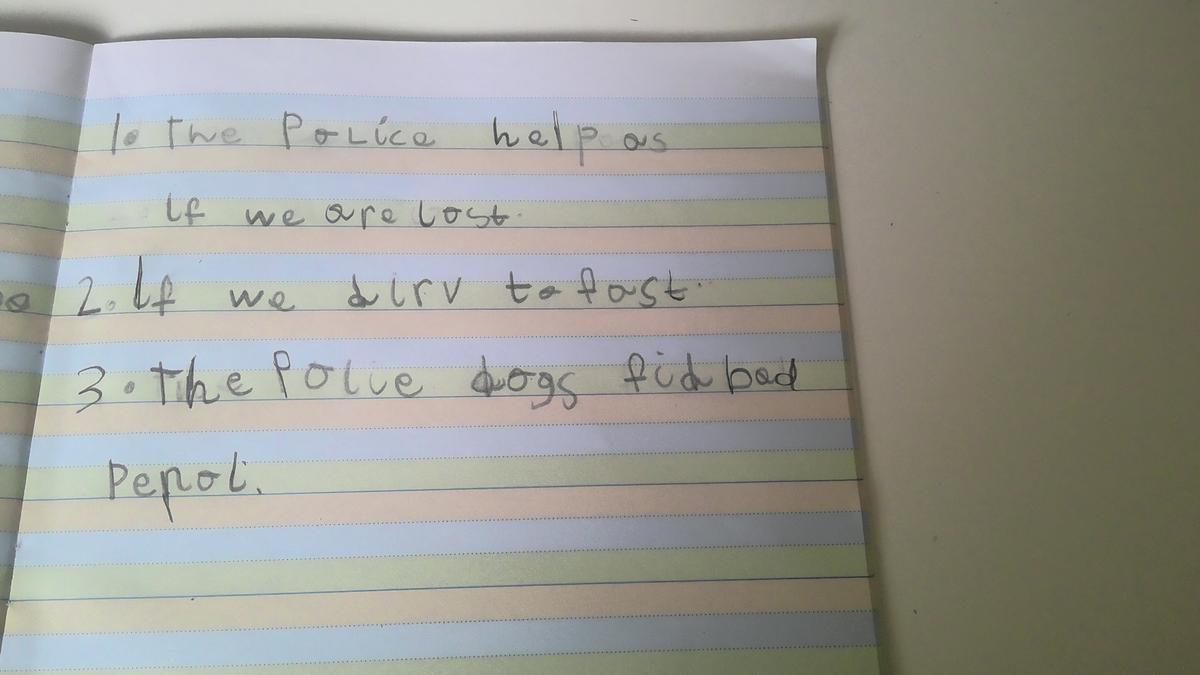 1. The Police help as
If we are lost.
2. If we dirv to fast.
3. The Polise dogs fid bad
Pepol.